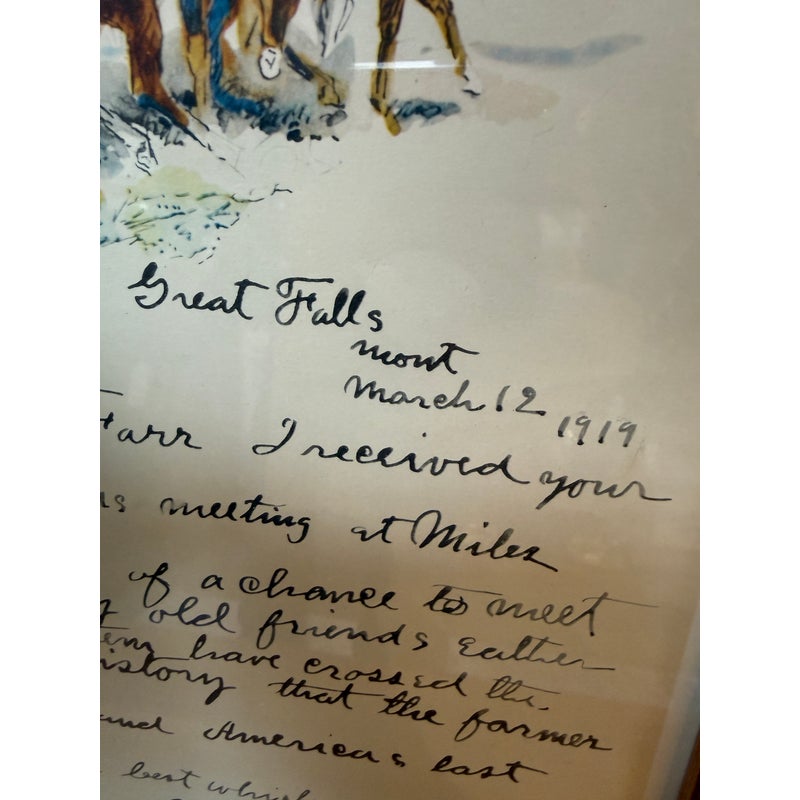 Great Falls
Mont
March 12 1919
Farr I received your
meeting at Miles
of a chance to meet
old friends gather
have crossed the
istory that the farmer
and Americas last
best whisk